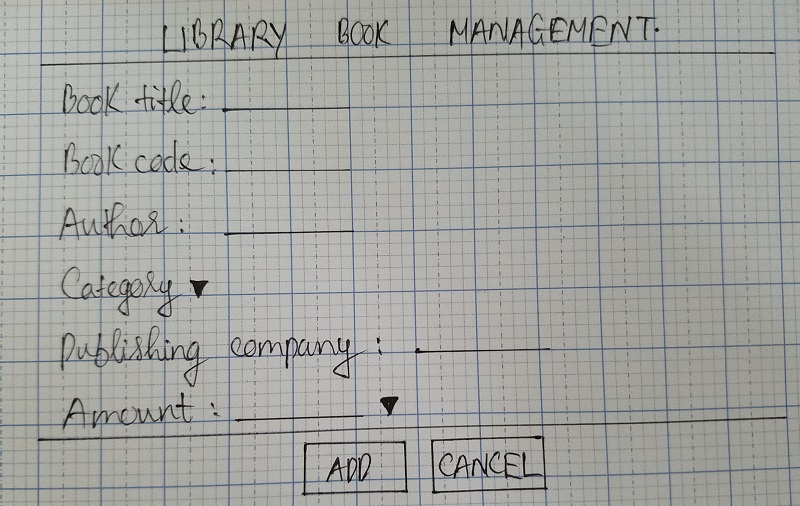 LIBRARY BOOK MANAGEMENT.
Book title:
Book code:
Author:
Category
Publishing company:
Amount:
ADD CANCEL